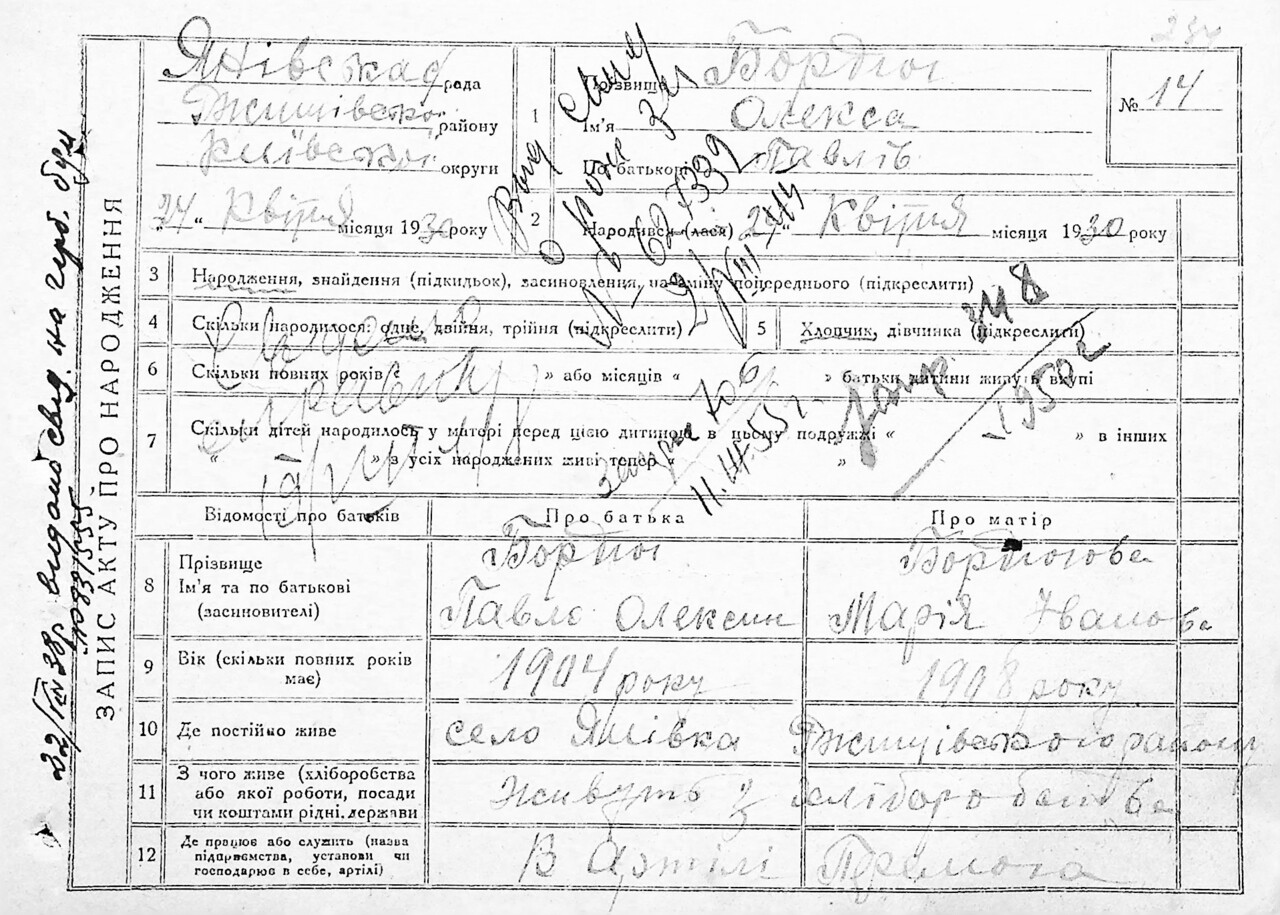 234
Янівська рада
Ржищівського району
Київської округи
"24" Квітня місяця 1930 року
1
Прізвище Бордюг
Ім'я Олекса
По батькові Павлів
№ 14
2
Народився (лася) 24" Квітня місяця 1930 року
ЗАПИС АКТУ ПРО НАРОДЖЕННЯ
3 Народження, знайдення (підкидьок), засиновлення, на заміну попереднього (підкреслити)
4 Скільки народилося: одне, двійня, трійня (підкреслити)
5 Хлопчик, дівчинка (підкреслити)
6 Скільки повних років « » або місяців « » батьки дитини живуть вкупі
7 Скільки дітей народилось у матері перед цією дитиною в цьому подружжі « » в інших
« » з усіх народжених живі тепер « »
11.III.55 г.
1950 г
Відомості про батьків
Про батька
Про матір
8 Прізвище
Ім'я та по батькові
(засиновителі)
Бордюг
Павло Олексин
Бордюгова
Марія Іванова
9 Вік (скільки повних років
має)
1904 року
1908 року
10 Де постійно живе
село Янівка Ржищівського району
11 З чого живе (хліборобства
або якої роботи, посади
чи коштами рідні, держави
Живуть з хліборобства
12 Де працює або служить (назва
підприємства, установи чи
господарює в себе, артілі)
В Артілі Премога